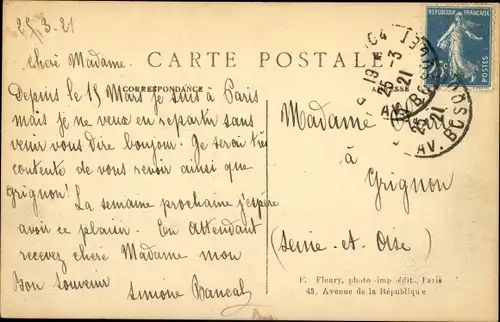 25/3-21
Cheré Madame.
CARTE POSTALE
RÉPUBLIQUE FRANÇAISE
POSTES
CORRESPONDANCE
ADRESSE
Depuis le 15 Mars je suis à Paris
mais je ne veux en repartir sans
venir vous dire bonjour. Je serai très
contente de vous revoir ainsi que
Grignon! La semaine prochaine j'espère
avoir ce plaisir. En attendant
recevez cheré Madame mon
Bon souvenir
Simone Rancal
Madame
à
Grignon
(Seine-et-Oise)
F. Fleury, photo-imp-édit., Paris
43, Avenue de la République
25-3
21
AV. BOSQU